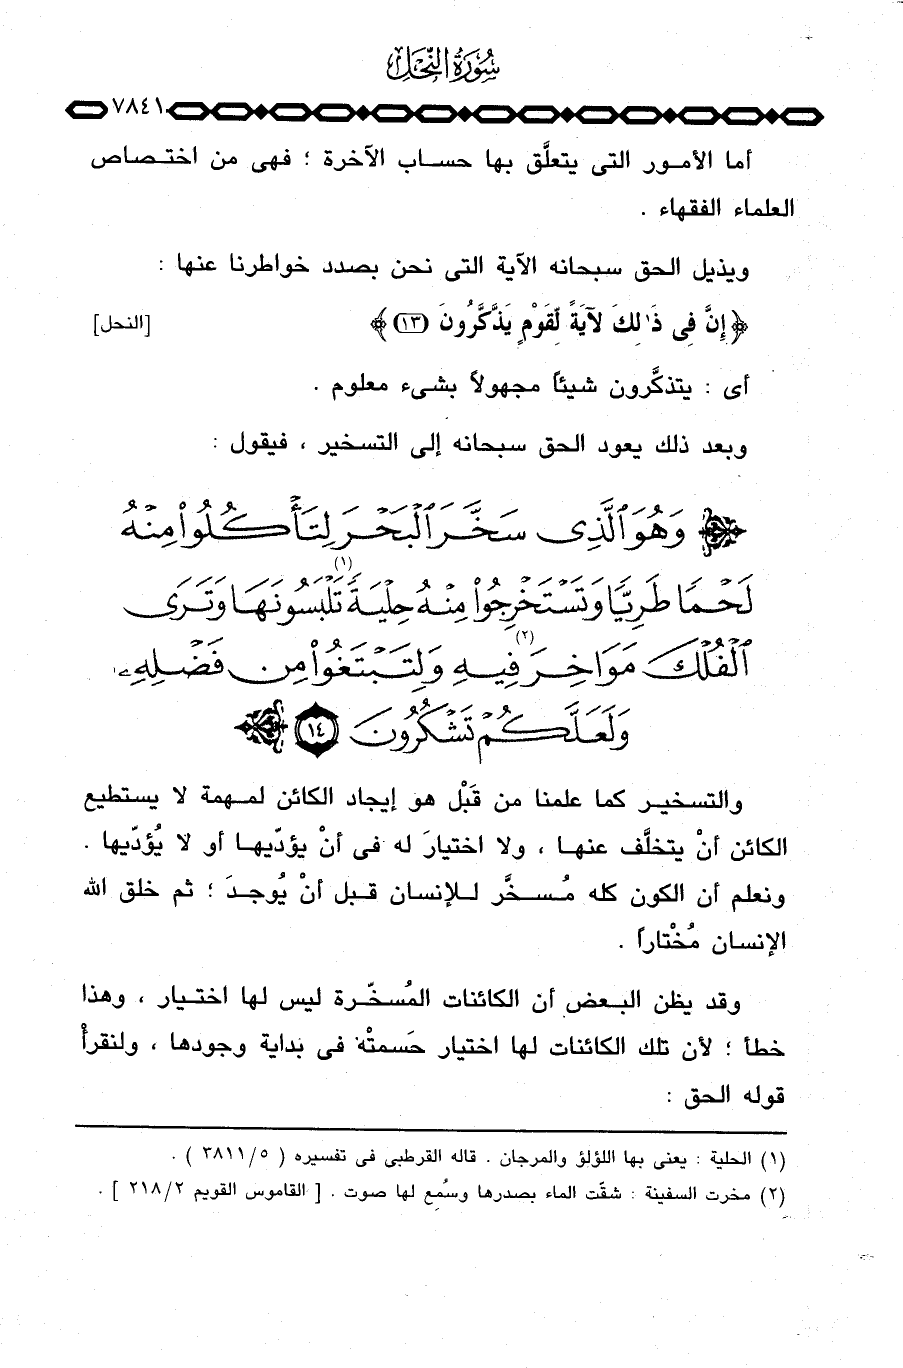 سورة النحل
٧٨٤١
أما الأمور التى يتعلَّق بها حساب الآخرة ؛ فهى من اختصاص
العلماء الفقهاء .
ويذيل الحق سبحانه الآية التى نحن بصدد خواطرنا عنها :
﴿ إِنَّ فِى ذَٰلِكَ لَآيَةً لِّقَوْمٍ يَذَّكَّرُونَ (١٣) ﴾ [النحل]
أى : يتذكَّرون شيئاً مجهولاً بشىء معلوم .
وبعد ذلك يعود الحق سبحانه إلى التسخير ، فيقول :
﴿ وَهُوَ ٱلَّذِى سَخَّرَ ٱلْبَحْرَ لِتَأْكُلُوا۟ مِنْهُ
لَحْمًا طَرِيًّا وَتَسْتَخْرِجُوا۟ مِنْهُ حِلْيَةً (١) تَلْبَسُونَهَا وَتَرَى
ٱلْفُلْكَ مَوَاخِرَ (٢) فِيهِ وَلِتَبْتَغُوا۟ مِن فَضْلِهِۦ
وَلَعَلَّكُمْ تَشْكُرُونَ (١٤) ﴾
والتسخير كما علمنا من قَبْل هو إيجاد الكائن لمهمة لا يستطيع
الكائن أنْ يتخلَّف عنها ، ولا اختيارَ له فى أنْ يؤدّيها أو لا يُؤدّيها .
ونعلم أن الكون كله مُسخَّر للإنسان قبل أنْ يُوجدَ ؛ ثم خلق الله
الإنسان مُخْتاراً .
وقد يظن البعض أن الكائنات المُسخّرة ليس لها اختيار ، وهذا
خطأ ؛ لأن تلك الكائنات لها اختيار حَسمتْه فى بداية وجودها ، ولنقرأْ
قوله الحق :
(١) الحلية : يعنى بها اللؤلؤ والمرجان . قاله القرطبى فى تفسيره ( ٣٨١١/٥ ) .
(٢) مخرت السفينة : شقّت الماء بصدرها وسُمع لها صوت . [ القاموس القويم ٢١٨/٢ ] .